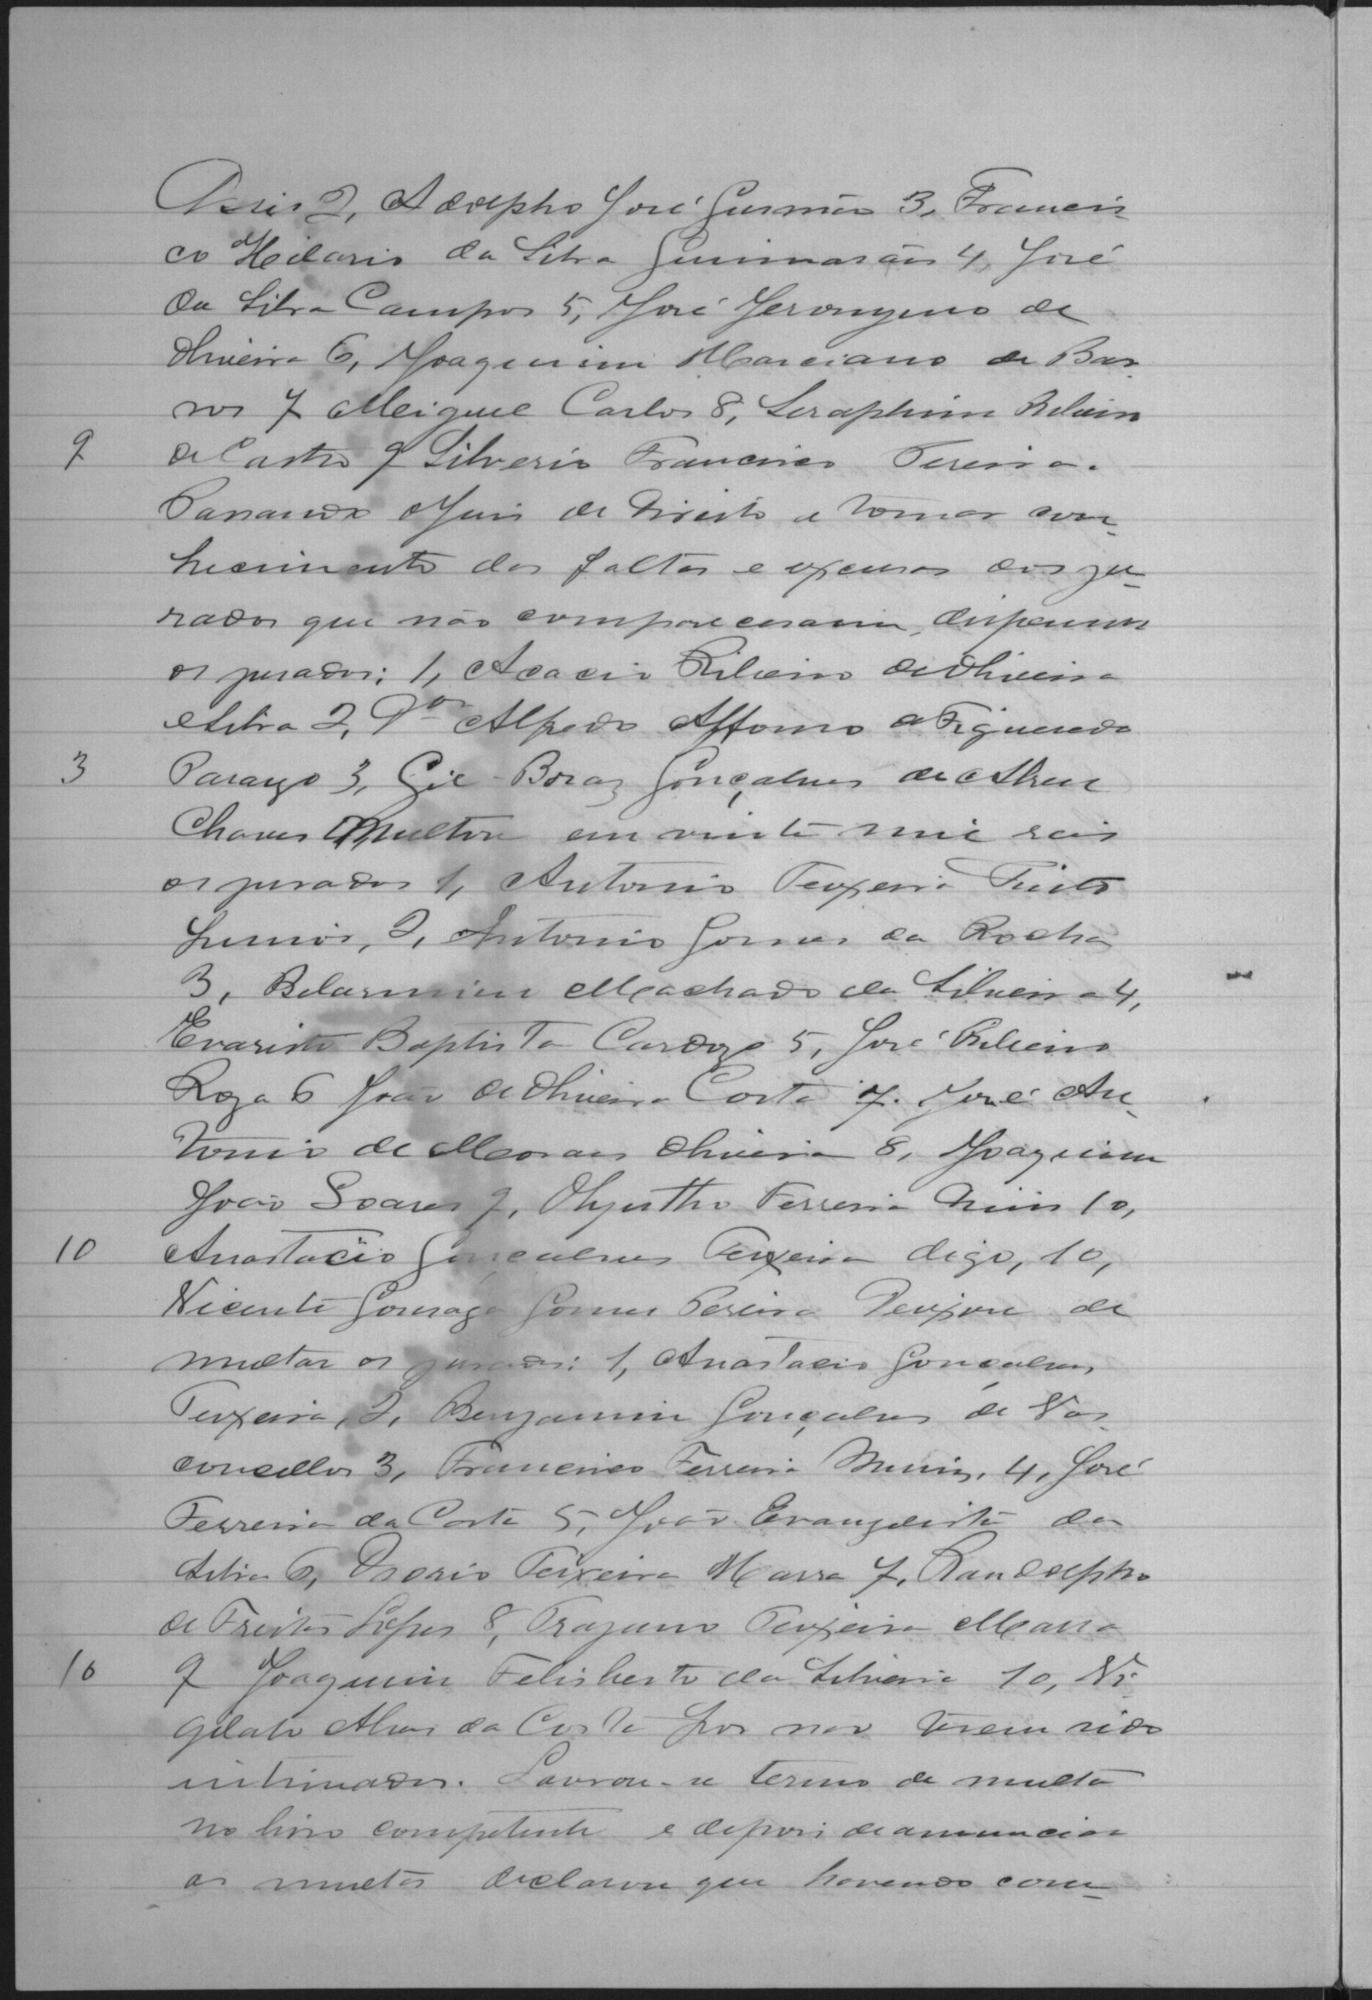 Assis 2, Adolpho José Gusmão 3, Francis
co Hilario da Silva Guimarães 4, José
da Silva Campos 5, José Jeronymo de
Oliveira 6, Joaquim Marciano de Bar
ros 7 Miguel Carlos 8, Seraphim Ribeiro
9 de Castro 9 Silverio Francisco Pereira.
Passando o Juis de Direito a tomar con-
hecimento das faltas e excusas dos ju-
rados que não compareceram, dispensou
os jurados: 1, Acacio Ribeiro de Oliveira
e Silva 2, Dor Alfredo Affonso de Figueredo
3 Parayo 3, Gil Braz Gonçalves de Abreu
Chaves Multou em vinte mil reis
os jurados 1, Antonio Teixeira Pinto
Junior, 2, Antonio Gomes da Rocha
3, Belarmino Machado da Silveira 4,
Evaristo Baptista Cardozo 5, José Ribeiro
Roza 6 João de Oliveira Costa 7. José An-
tonio de Moraes Oliveira 8, Joaquim
João Soares 9, Olyntho Ferreira Muniz 10,
10 Anastacio Gonçalves Teixeira digo, 10,
Vicente Gonzaga Gomes Pereira Deixou de
multar os jurados: 1, Anastacio Gonçalves
Teixeira, 2, Benjamim Gonçalves de Vas-
concellos 3, Francisco Ferreira Muniz, 4, José
Ferreira da Costa 5, João Evangelista da
Silva 6, Ozorio Teixeira Marra 7, Randolpho
de Freitas Lopes 8, Trajano Teixeira Marra
10 9 Joaquim Felisberto da Silveira 10, Vi-
gilato Alves da Costa por não terem sido
intimados. Lavrou-se termo de multa
no livro competente e depois de annunciar
as multas declarou que havendo com-